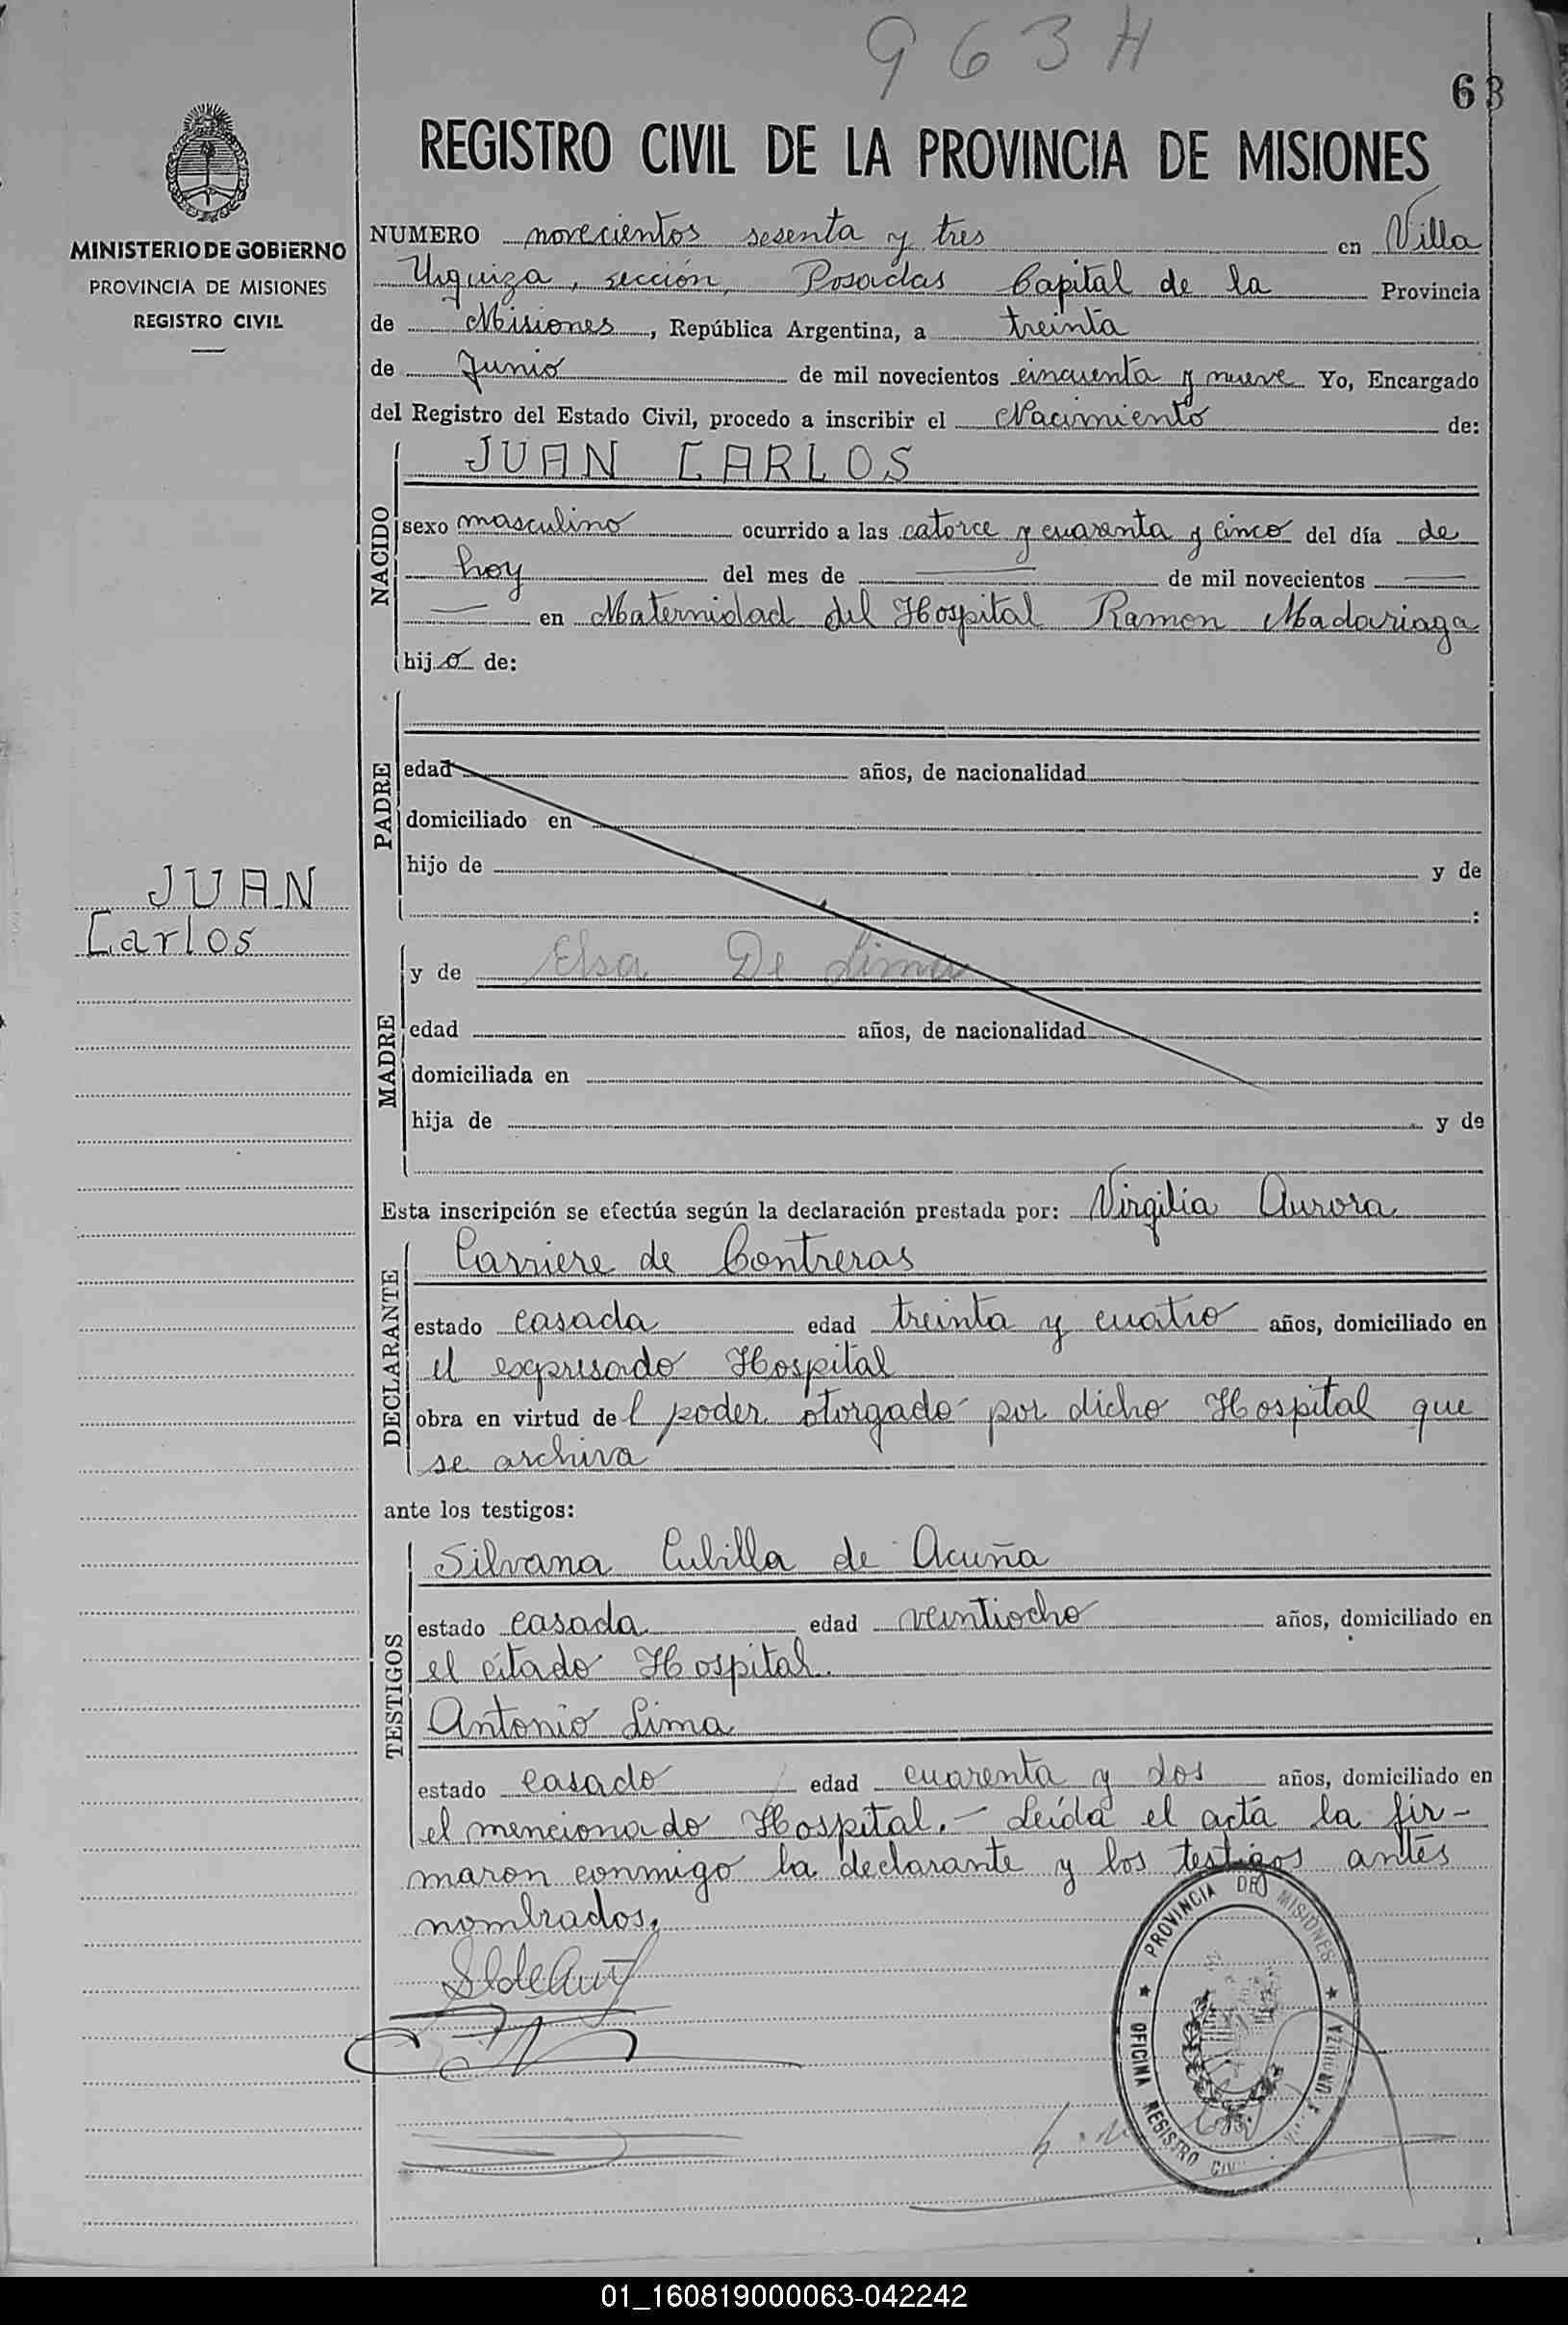 963 H
63
REGISTRO CIVIL DE LA PROVINCIA DE MISIONES
MINISTERIO DE GOBIERNO
PROVINCIA DE MISIONES
REGISTRO CIVIL
NUMERO novecientos sesenta y tres en Villa
Urquiza, sección, Posadas Capital de la Provincia
de Misiones, República Argentina, a treinta
de Junio de mil novecientos cincuenta y nueve Yo, Encargado
del Registro del Estado Civil, procedo a inscribir el Nacimiento de:
NACIDO
JUAN CARLOS
sexo masculino ocurrido a las catorce y cuarenta y cinco del día de
hoy del mes de — de mil novecientos —
— en Maternidad del Hospital Ramon Madariaga
hijo de:
PADRE
edad años, de nacionalidad
domiciliado en
hijo de y de
:
JUAN
Carlos
MADRE
y de Elsa De Lima
edad años, de nacionalidad
domiciliada en
hija de y de
Esta inscripción se efectúa según la declaración prestada por: Virgilia Aurora
DECLARANTE
Carriere de Contreras
estado casada edad treinta y cuatro años, domiciliado en
el expresado Hospital
obra en virtud del poder otorgado por dicho Hospital que
se archiva
ante los testigos:
TESTIGOS
Silvana Cubilla de Acuña
estado casada edad veintiocho años, domiciliado en
el citado Hospital.
Antonio Lima
estado casado edad cuarenta y dos años, domiciliado en
el mencionado Hospital.- Leída el acta la fir-
maron conmigo la declarante y los testigos antes
nombrados.
PROVINCIA DE MISIONES
OFICINA REGISTRO CIVIL
URQUIZA
01_160819000063-042242